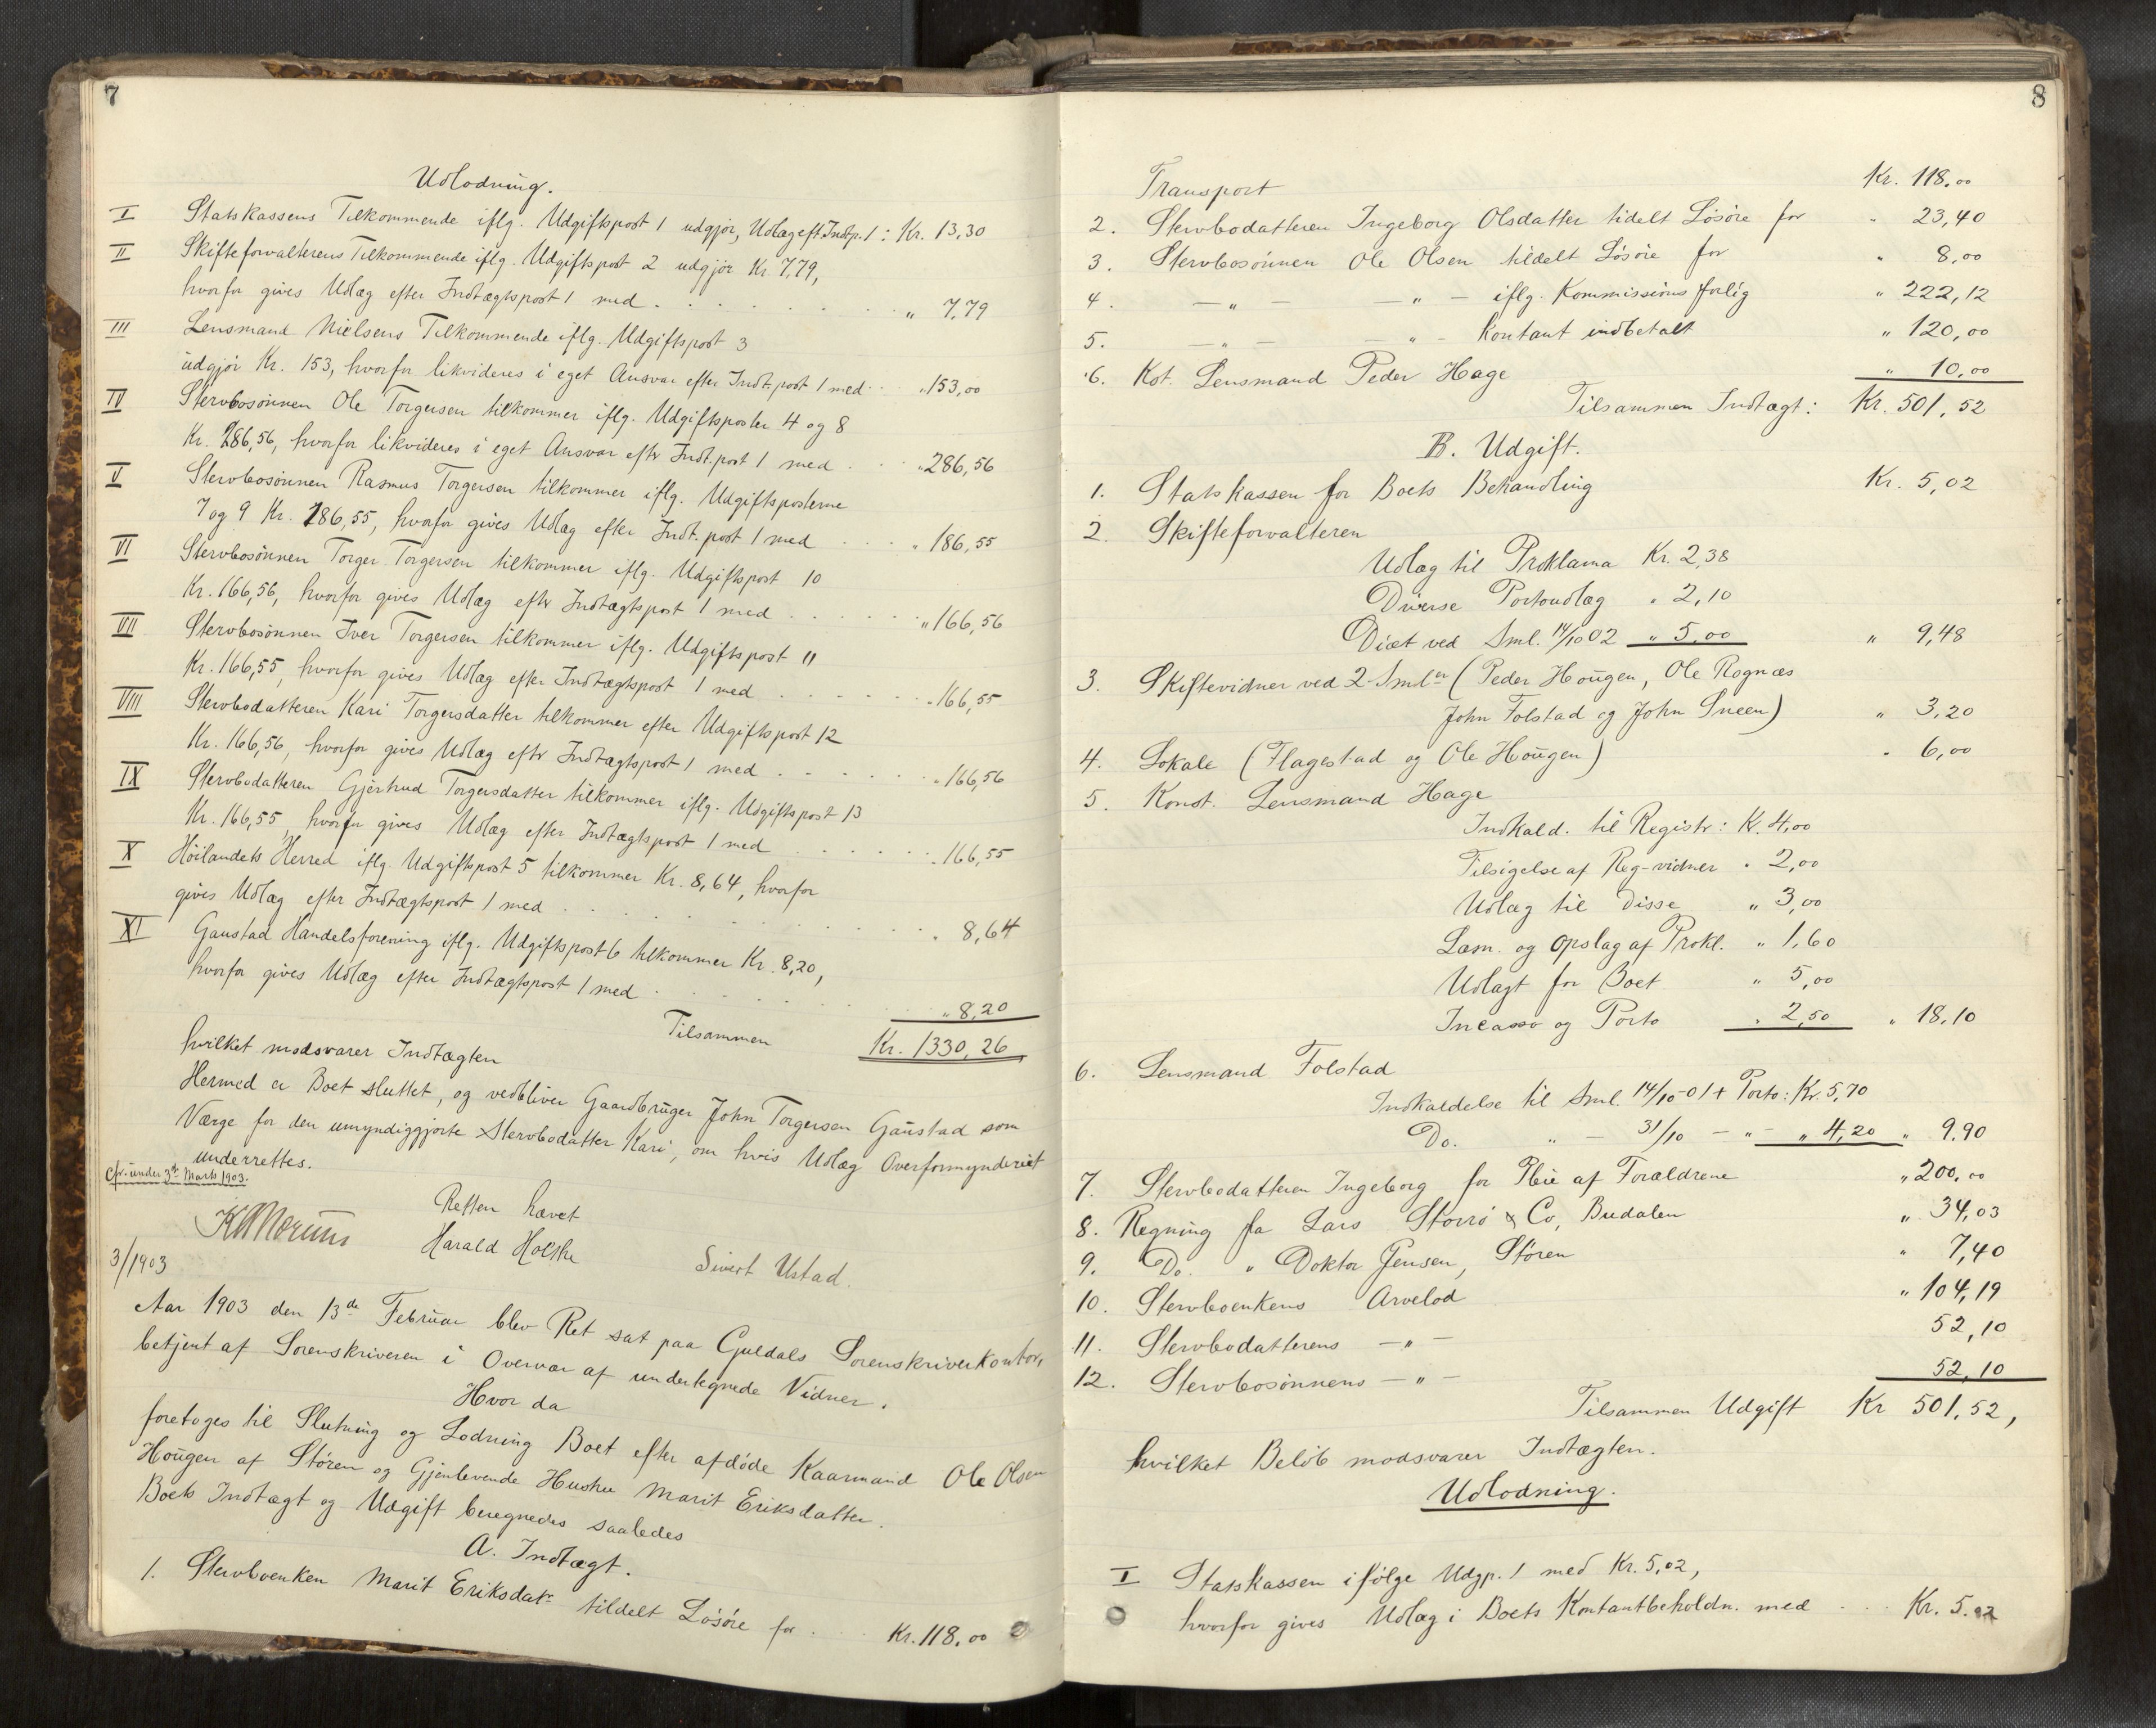 7
Udlodning.
I Statskassens Tilkommende iflg. Udgiftspost 1 udgjør, Udlæg eft. Indtp. 1: Kr. 13,30
II Skifteforvalterens Tilkommende iflg. Udgiftspost 2 udgjør Kr. 7,79,
hvorfor gives Udlæg efter Indtægtspost 1 med . . . . . . " 7,79
III Lensmand Nielsens Tilkommende iflg. Udgiftspost 3
udgjør Kr. 153, hvorfor likvideres i eget Ansvar efter Indt.post 1 med . . " 153,00
IV Stervbosønnen Ole Torgersen tilkommer iflg. Udgiftsposter 4 og 8
Kr. 286,56, hvorfor likvideres i eget Ansvar eftr Indt.post 1 med . . . " 286,56
V Stervbosønnen Rasmus Torgersen tilkommer iflg. Udgiftsposterne
7 og 9 Kr. 186,55, hvorfor gives Udlæg efter Indt.post 1 med . . . " 186,55
VI Stervbosønnen Torger Torgersen tilkommer iflg. Udgiftspost 10
Kr. 166,56, hvorfor gives Udlæg eftr Indtægtspost 1 med . . . . . . " 166,56
VII Stervbosønnen Iver Torgersen tilkommer iflg. Udgiftspost 11
Kr. 166,55, hvorfor gives Udlæg efter Indtægtspost 1 med . . . . . . " 166,55
VIII Stervbodatteren Kari Torgersdatter tilkommer efter Udgiftspost 12
Kr. 166,56, hvorfor gives Udlæg eftr Indtægtspost 1 med . . . . . . " 166,56
IX Stervbodatteren Gjertrud Torgersdatter tilkommer iflg. Udgiftspost 13
Kr. 166,55, hvorfor gives Udlæg efter Indtægtspost 1 med . . . . . . " 166,55
X Höilandets Herred iflg. Udgiftspost 5 tilkommer Kr. 8,64, hvorfor
gives Udlæg efter Indtægtspost 1 med . . . . . . " 8,64
XI Gaustad Handelsforening iflg. Udgiftspost 6 tilkommer Kr. 8,20,
hvorfor gives Udlæg efter Indtægtspost 1 med . . . . . . " 8,20
Tilsammen Kr. 1330,26
hvilket modsvarer Indtægten
Hermed er Boet sluttet, og vedbliver Gaardbruger John Torgersen Gaustad som
Værge for den umyndiggjorte Stervbodatter Kari, om hvis Udlæg Overformynderiet
underrettes.
Cfr. under 3die Marts 1903.
Retten hævet
Harald Holthe
Sivert Ustad.
3/1903
Aar 1903 den 13de Februar blev Ret sat paa Guldals Sorenskriverkontor,
betjent af Sorenskriveren i Overvær af undertegnede Vidner.
Hvor da
foretoges til Slutning og Lodning Boet efter afdøde Kaarmand Ole Olsen
Hougen af Støren og Gjenlevende Hustru Marit Eriksdatter.
Boets Indtægt og Udgift beregnedes saaledes
A. Indtægt.
1. Stervboenken Marit Eriksdatr tildelt Løsøre for . . . Kr. 118,00
8
Transport Kr. 118,00
2. Stervbodatteren Ingeborg Olsdatter tidelt Løsøre for " 23,40
3. Stervbosønnen Ole Olsen tildelt Løsøre for " 8,00
4. — " — — " — iflg. Kommissions forlig " 222,12
5. — " — — " — Kontant indbetalt " 120,00
6. Kst. Lensmand Peder Hage " 10,00
Tilsammen Indtægt: Kr. 501,52
B. Udgift.
1. Statskassen for Boets Behandling Kr. 5,02
2. Skifteforvalteren
Udlæg til Proklama Kr. 2,38
Diverse Portoudlæg " 2,10
Diæt ved Sml. 14/10 02 " 5,00 " 9,48
3. Skiftevidner ved 2 Smler (Peder Hougen, Ole Rognæs
John Folstad og John Sneen) " 3,20
4. Lokale (Flagestad og Ole Hougen) " 6,00
5. Konst. Lensmand Hage
Indkald. til Registr: Kr. 4,00
Tilsigelse af Reg-vidner " 2,00
Udlæg til Disse " 3,00
Læsn. og Opslag af Prokl. " 1,60
Udlagt for Boet " 5,00
Incasso og Porto " 2,50 " 18,10
6. Lensmand Folstad
Indkaldelse til Sml. 14/10-01 + Porto: Kr. 5,70
Do. " — 31/10 — " — " 4,20 " 9,90
7. Stervbodatteren Ingeborg for Pleie af Forældrene " 200,00
8. Regning fra Lars Storrø & Co, Budalen " 34,03
9. Do. " Doktor Jensen, Støren " 7,40
10. Stervboenkens Arvelod " 104,19
11. Stervbodatterens — " — 52,10
12. Stervbosønnens — " — 52,10
Tilsammen Udgift Kr 501,52,
hvilket Beløb modsvarer Indtægten.
Udlodning.
I Statskassen ifølge Udgp. 1 med Kr. 5,02,
hvorfor gives Udlæg i Boets Kontantbeholdn. med . . . Kr. 5.02